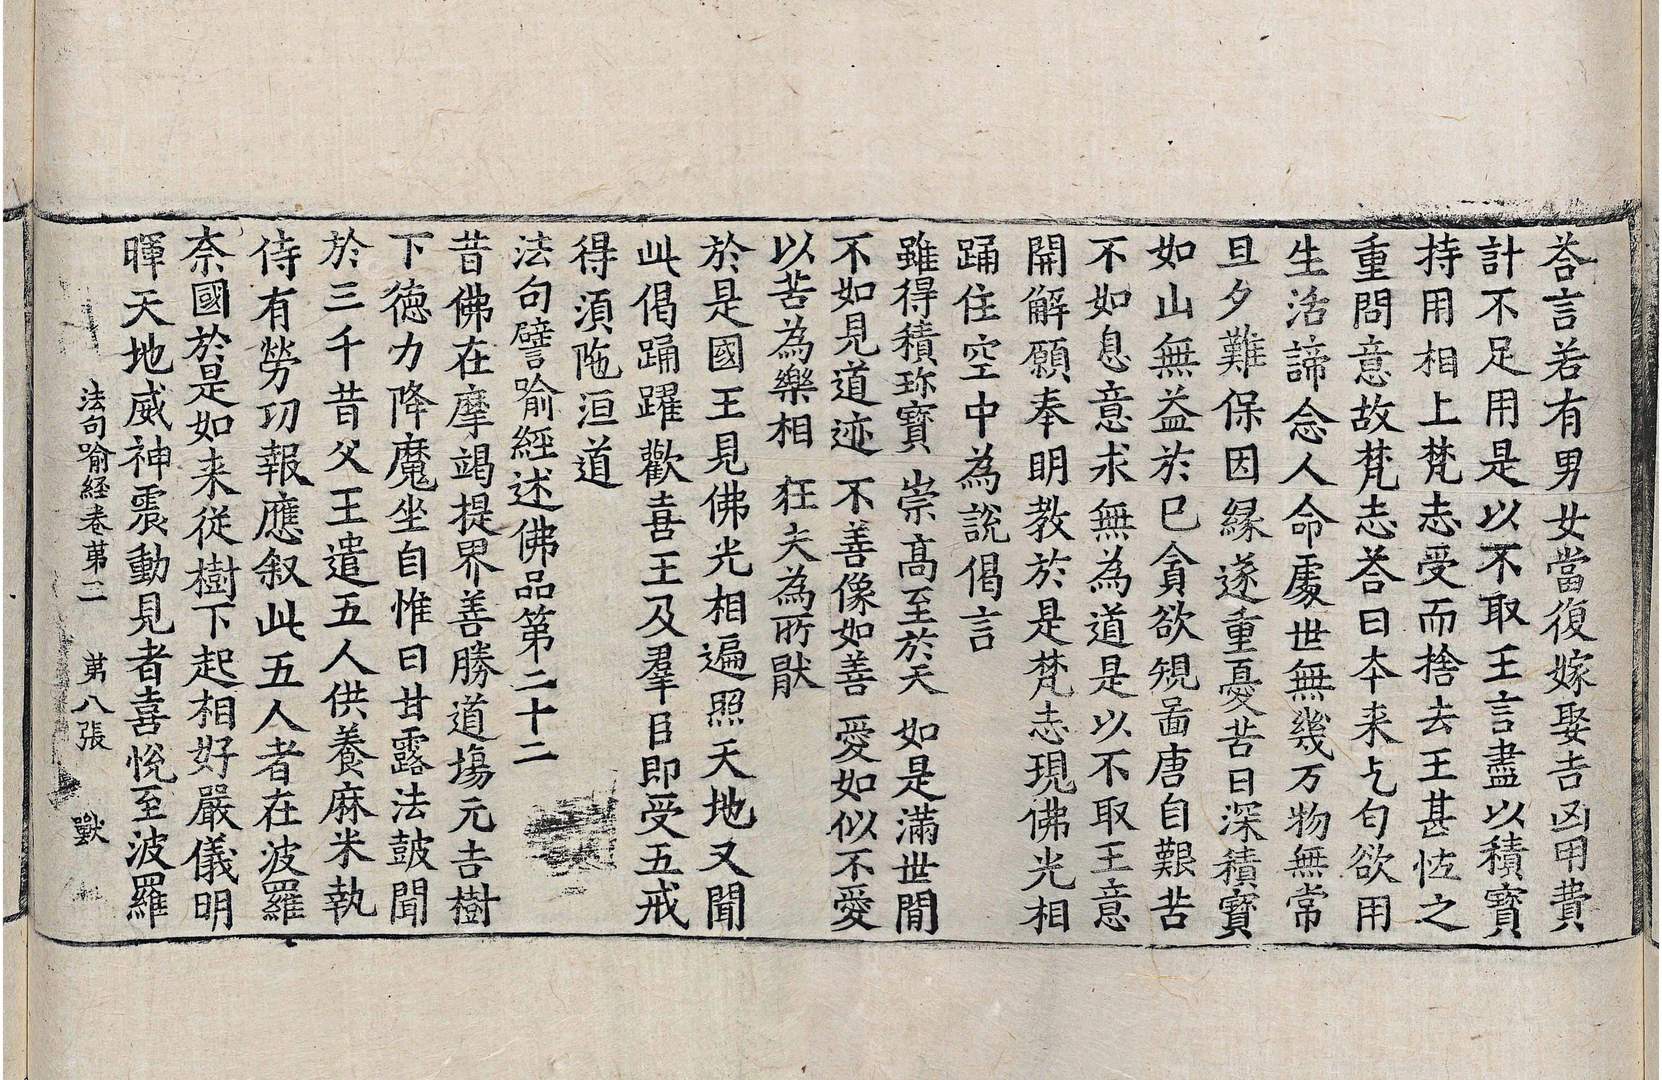 荅言若有男女當復嫁娶吉凶用費
計不足用是以不取王言盡以積寳
持用相上梵志受而捨去王甚恠之
重問意故梵志荅曰本来乞匂欲用
生活諦念人命處世無幾万物無常
旦夕難保因縁遂重憂苦日深積寳
如山無益於巳貪欲規啚唐自艱苦
不如息意求無為道是以不取王意
開解願奉明教於是梵志現佛光相
踊住空中為說偈言
雖得積珎寳 崇髙至於天 如是滿世閒
不如見道迹 不善像如善 愛如似不愛
以苦為樂相 狂夫為所猒
於是國王見佛光相遍照天地又聞
此偈踊躍歡喜王及羣臣即受五戒
得湏陁洹道
法句譬喻經述佛品第二十二
昔佛在摩竭提界善勝道塲元吉樹
下德力降魔坐自惟曰甘露法鼓聞
於三千昔父王遣五人供養麻米執
侍有勞功報應叙此五人者在波羅
奈國於是如来従樹下起相好嚴儀明
暉天地威神震動見者喜悅至波羅
法句喻経卷第三 第八張 獸